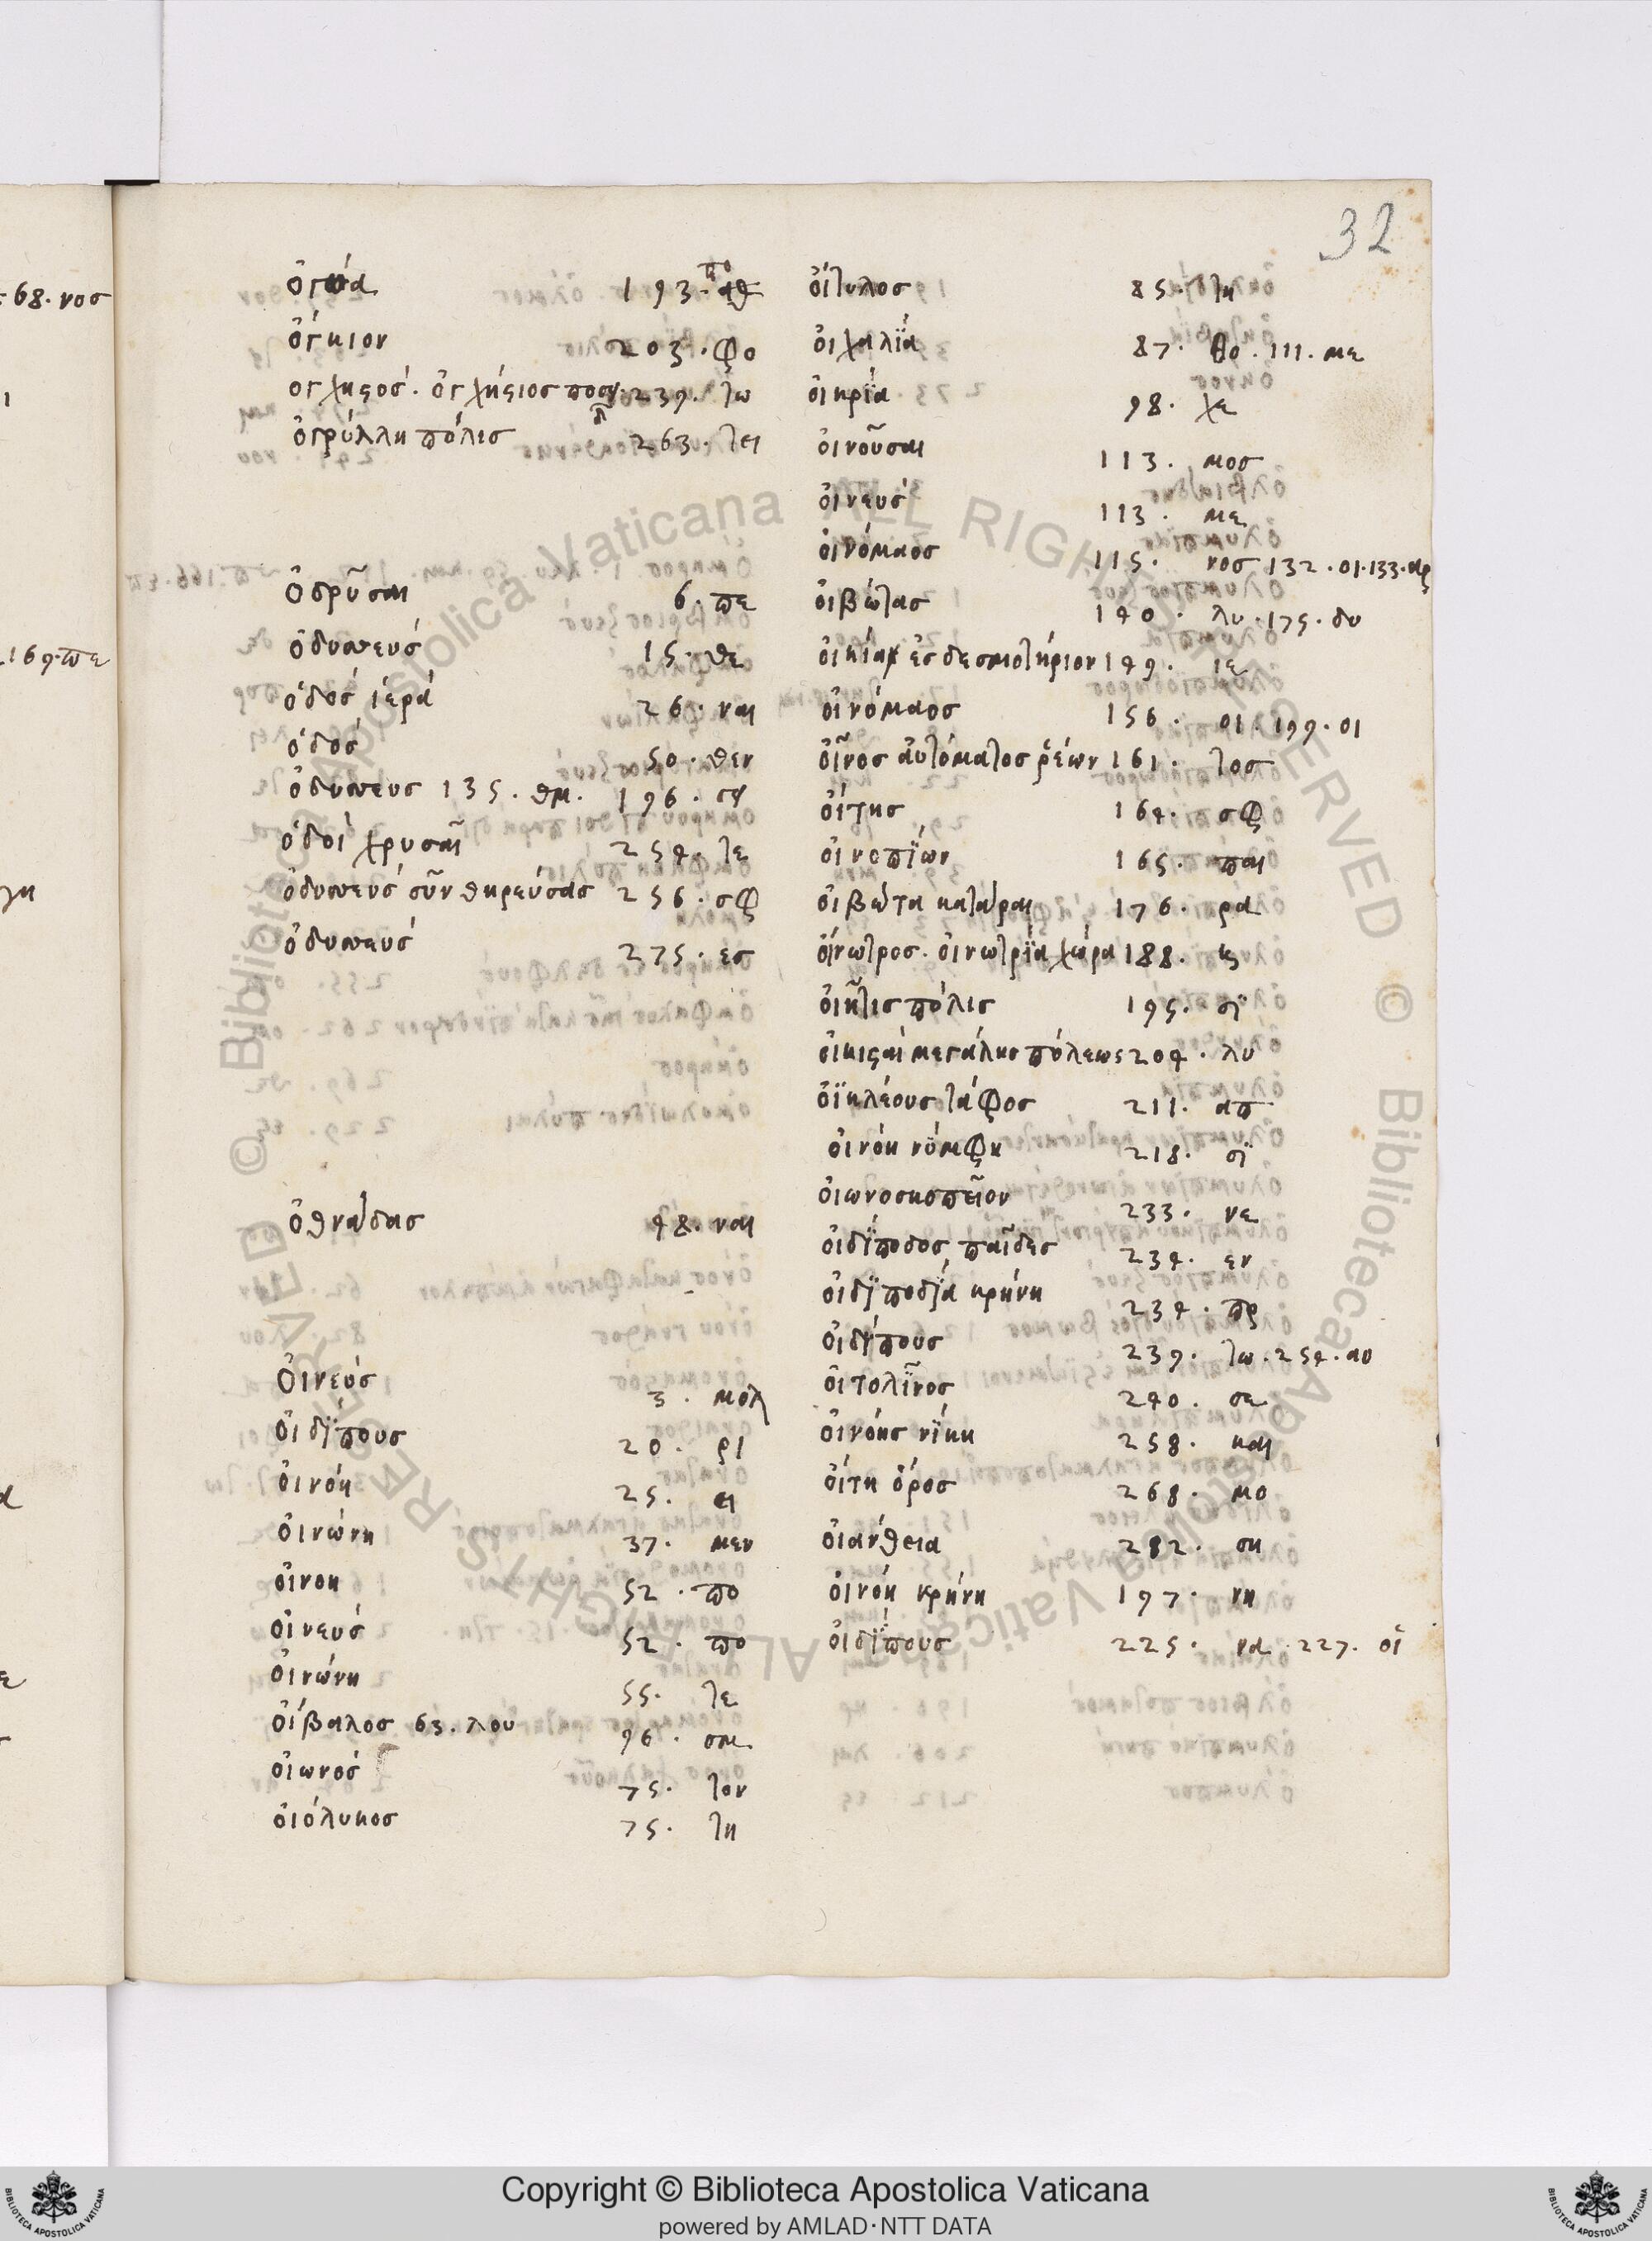 32
68. νοσ
169. πε
ὀγκά 193. πο
ὄγκιον 203. φο
ογχηστοσ. ὀγχήστιοσ ποσ. 239. τω
ὀγρύλλη πόλισ 263. τει
Ὀδρῦσαι 6. πε
ὀδυσσευσ 15. θε
ὁδοσ ἱερά 26. ναι
ὁδοσ 50. θεν
ὀδυσσευσ 135. θμ. 196. σφ
ὁδοὶ χρυσαῖ 254. τε
ὀδυσσευσ σῦν θηρεύσασ 256. σφ
ὀδυσσευσ 275. εσ
ὀθνάδασ 48. ναι
Οἰνεύσ 3. μολ
Οἰδΐπουσ 20. ρι
οἰνόη 25. ει
οἰνώνη 37. μεν
οἰνοη 52. πο
οἰνευσ 52. πο
Οἰνώνη 55. τε
οἴβαλοσ 63. λου 96. σμ
οἰωνόσ 75. τον
οἰόλυκοσ 75. τη
οἴτυλοσ 85. τη
οἰχαλΐα 87. θο. 111. με
οἰκρΐα 98. χε
οἰνοῦσαι 113. μοσ
οἰνευσ 113. με
οἰνόμαοσ 115. νοσ 132. οι. 133. αρ
οἰβώτασ 140. λυ. 175. δυ
οἰκίαι ἐσ δεσμοτήριον 149. ιε
οἰνόμαοσ 156. οι. 199. οι
οἶνοσ ἀυτόματοσ ῥέων 161. τοσ
οἴτησ 164. σφ
οἰνοπΐων 165. παι
οἰβώτα κατάραι 176. ρα
οἴνωτροσ. οἰνωτρΐα χώρα 188. κ
οἰῆτισ πόλισ 195. σϊ
οἰκισταὶ μεγάλησ πόλεωσ 204. λυ
οἰϊκλέουσ τάφοσ 211. απ
οἰνόη νύμφη 218. σϊ
οἰωνοσκοπεῖον 233. νε
οἰδΐποδοσ παῖδεσ 234. εν
οἰδϊποδΐα κρήνη 234. πρ
οἰδΐπουσ 239. τω. 254. αυ
οἰτολῖνοσ 240. σε
οἰνόησ νΐκη 258. και
οἴτη ὄροσ 268. μο
οἰάνθεια 282. ση
οἰνόη κρήνη 197. νη
οἰδΐπουσ 225. να. 227. οϊ
© Biblioteca Apostolica Vaticana ALL RIGHTS RESERVED
Copyright © Biblioteca Apostolica Vaticana
powered by AMLAD·NTT DATA